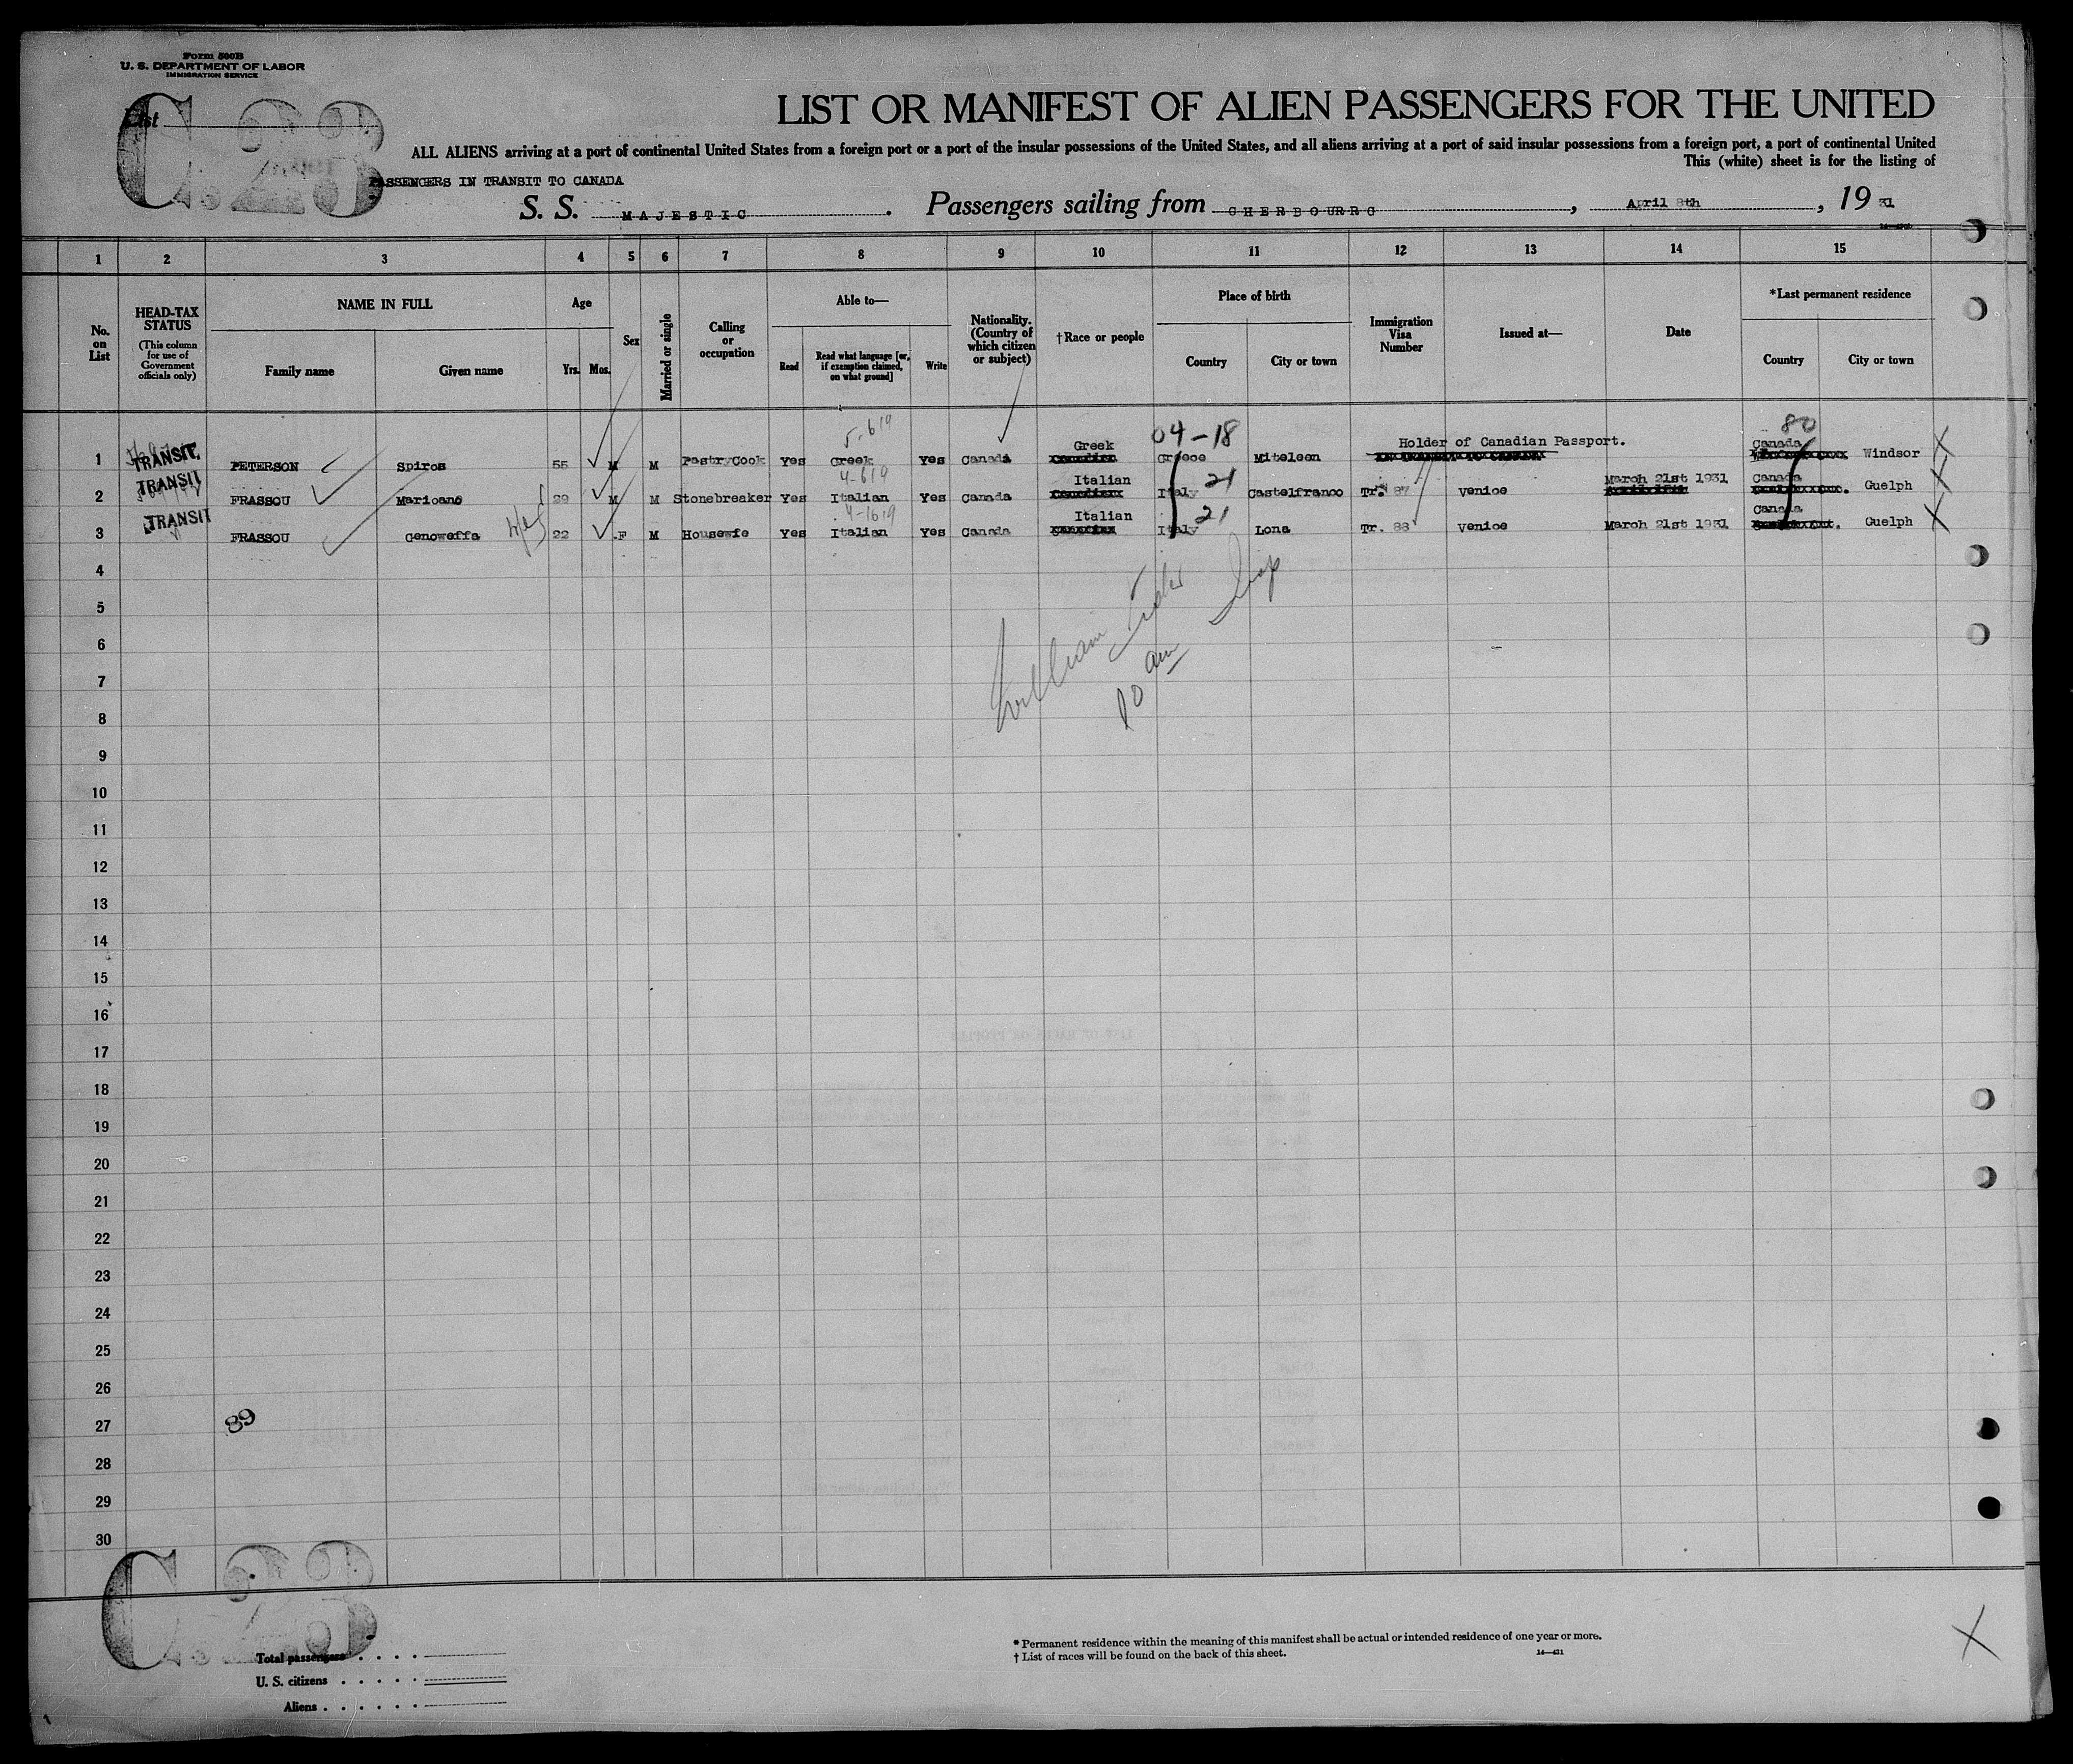 Form 500B
U. S. DEPARTMENT OF LABOR
IMMIGRATION SERVICE
C 23
List
LIST OR MANIFEST OF ALIEN PASSENGERS FOR THE UNITED
ALL ALIENS arriving at a port of continental United States from a foreign port or a port of the insular possessions of the United States, and all aliens arriving at a port of said insular possessions from a foreign port, a port of continental United
This (white) sheet is for the listing of
PASSENGERS IN TRANSIT TO CANADA
S. S. MAJESTIC. Passengers sailing from CHERBOURG, April 8th, 19 31
1 2 3 4 5 6 7 8 9 10 11 12 13 14 15
No. on List
HEAD-TAX STATUS (This column for use of Government officials only)
NAME IN FULL
Family name Given name
Age
Yrs. Mos.
Sex
Married or single
Calling or occupation
Able to—
Read Read what language [or, if exemption claimed, on what ground] Write
Nationality. (Country of which citizen or subject)
†Race or people
Place of birth
Country City or town
Immigration Visa Number
Issued at—
Date
*Last permanent residence
Country City or town
5-619 04-18 80
1 TRANSIT. PETERSON Spiros 55 M M PastryCook Yes Greek Yes Canada Greek Greece Miteleon Holder of Canadian Passport. Canada Windsor
4-619 21
2 TRANSIT FRASSOU Marioano 29 M M Stonebreaker Yes Italian Yes Canada Italian Italy Castelfranco Tr. 87 Venice March 21st 1931 Canada Guelph
4-1619 21
3 TRANSIT FRASSOU Genoweffa 22 F M Housewfe Yes Italian Yes Canada Italian Italy Lona Tr. 88 Venice March 21st 1931 Canada Guelph
4
5
6
William
Insp
10 am
7
8
9
10
11
12
13
14
15
16
17
18
19
20
21
22
23
24
25
26
27
89
28
29
30
C 23
Total passengers
U. S. citizens
Aliens
* Permanent residence within the meaning of this manifest shall be actual or intended residence of one year or more.
† List of races will be found on the back of this sheet.
14—431